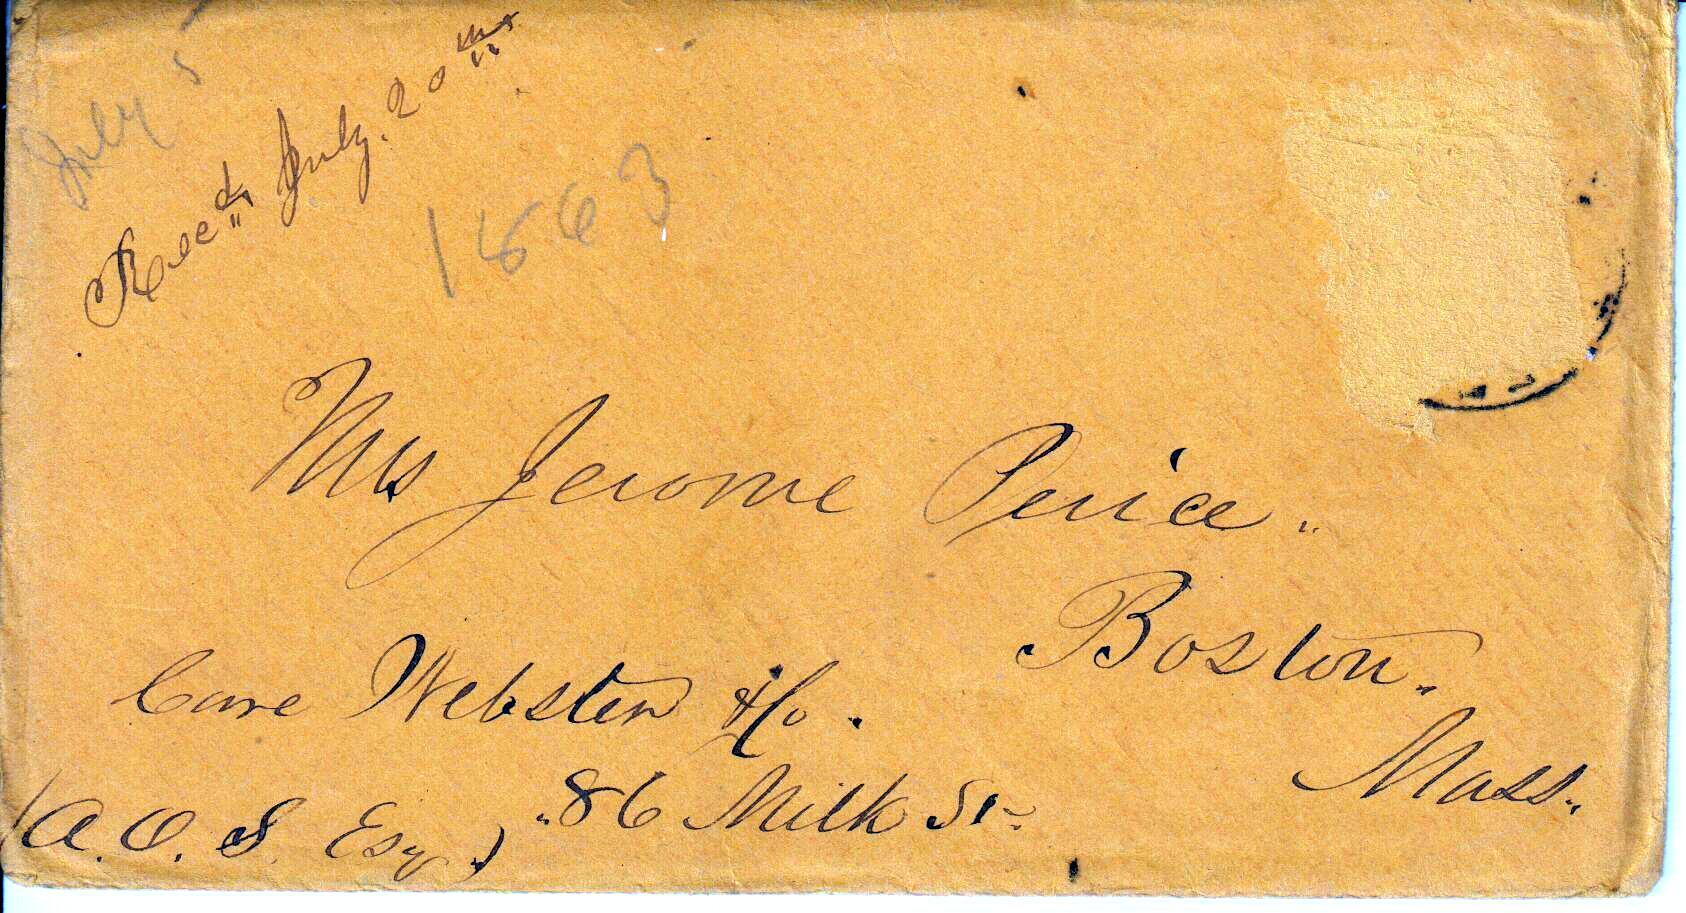 July 5
Rec'd July. 20ths
1863
Mrs Jerome Perice.
Boston.
Mass.
Care Webster & Co.
86 Milk St.
(A. O. S. Esq.)